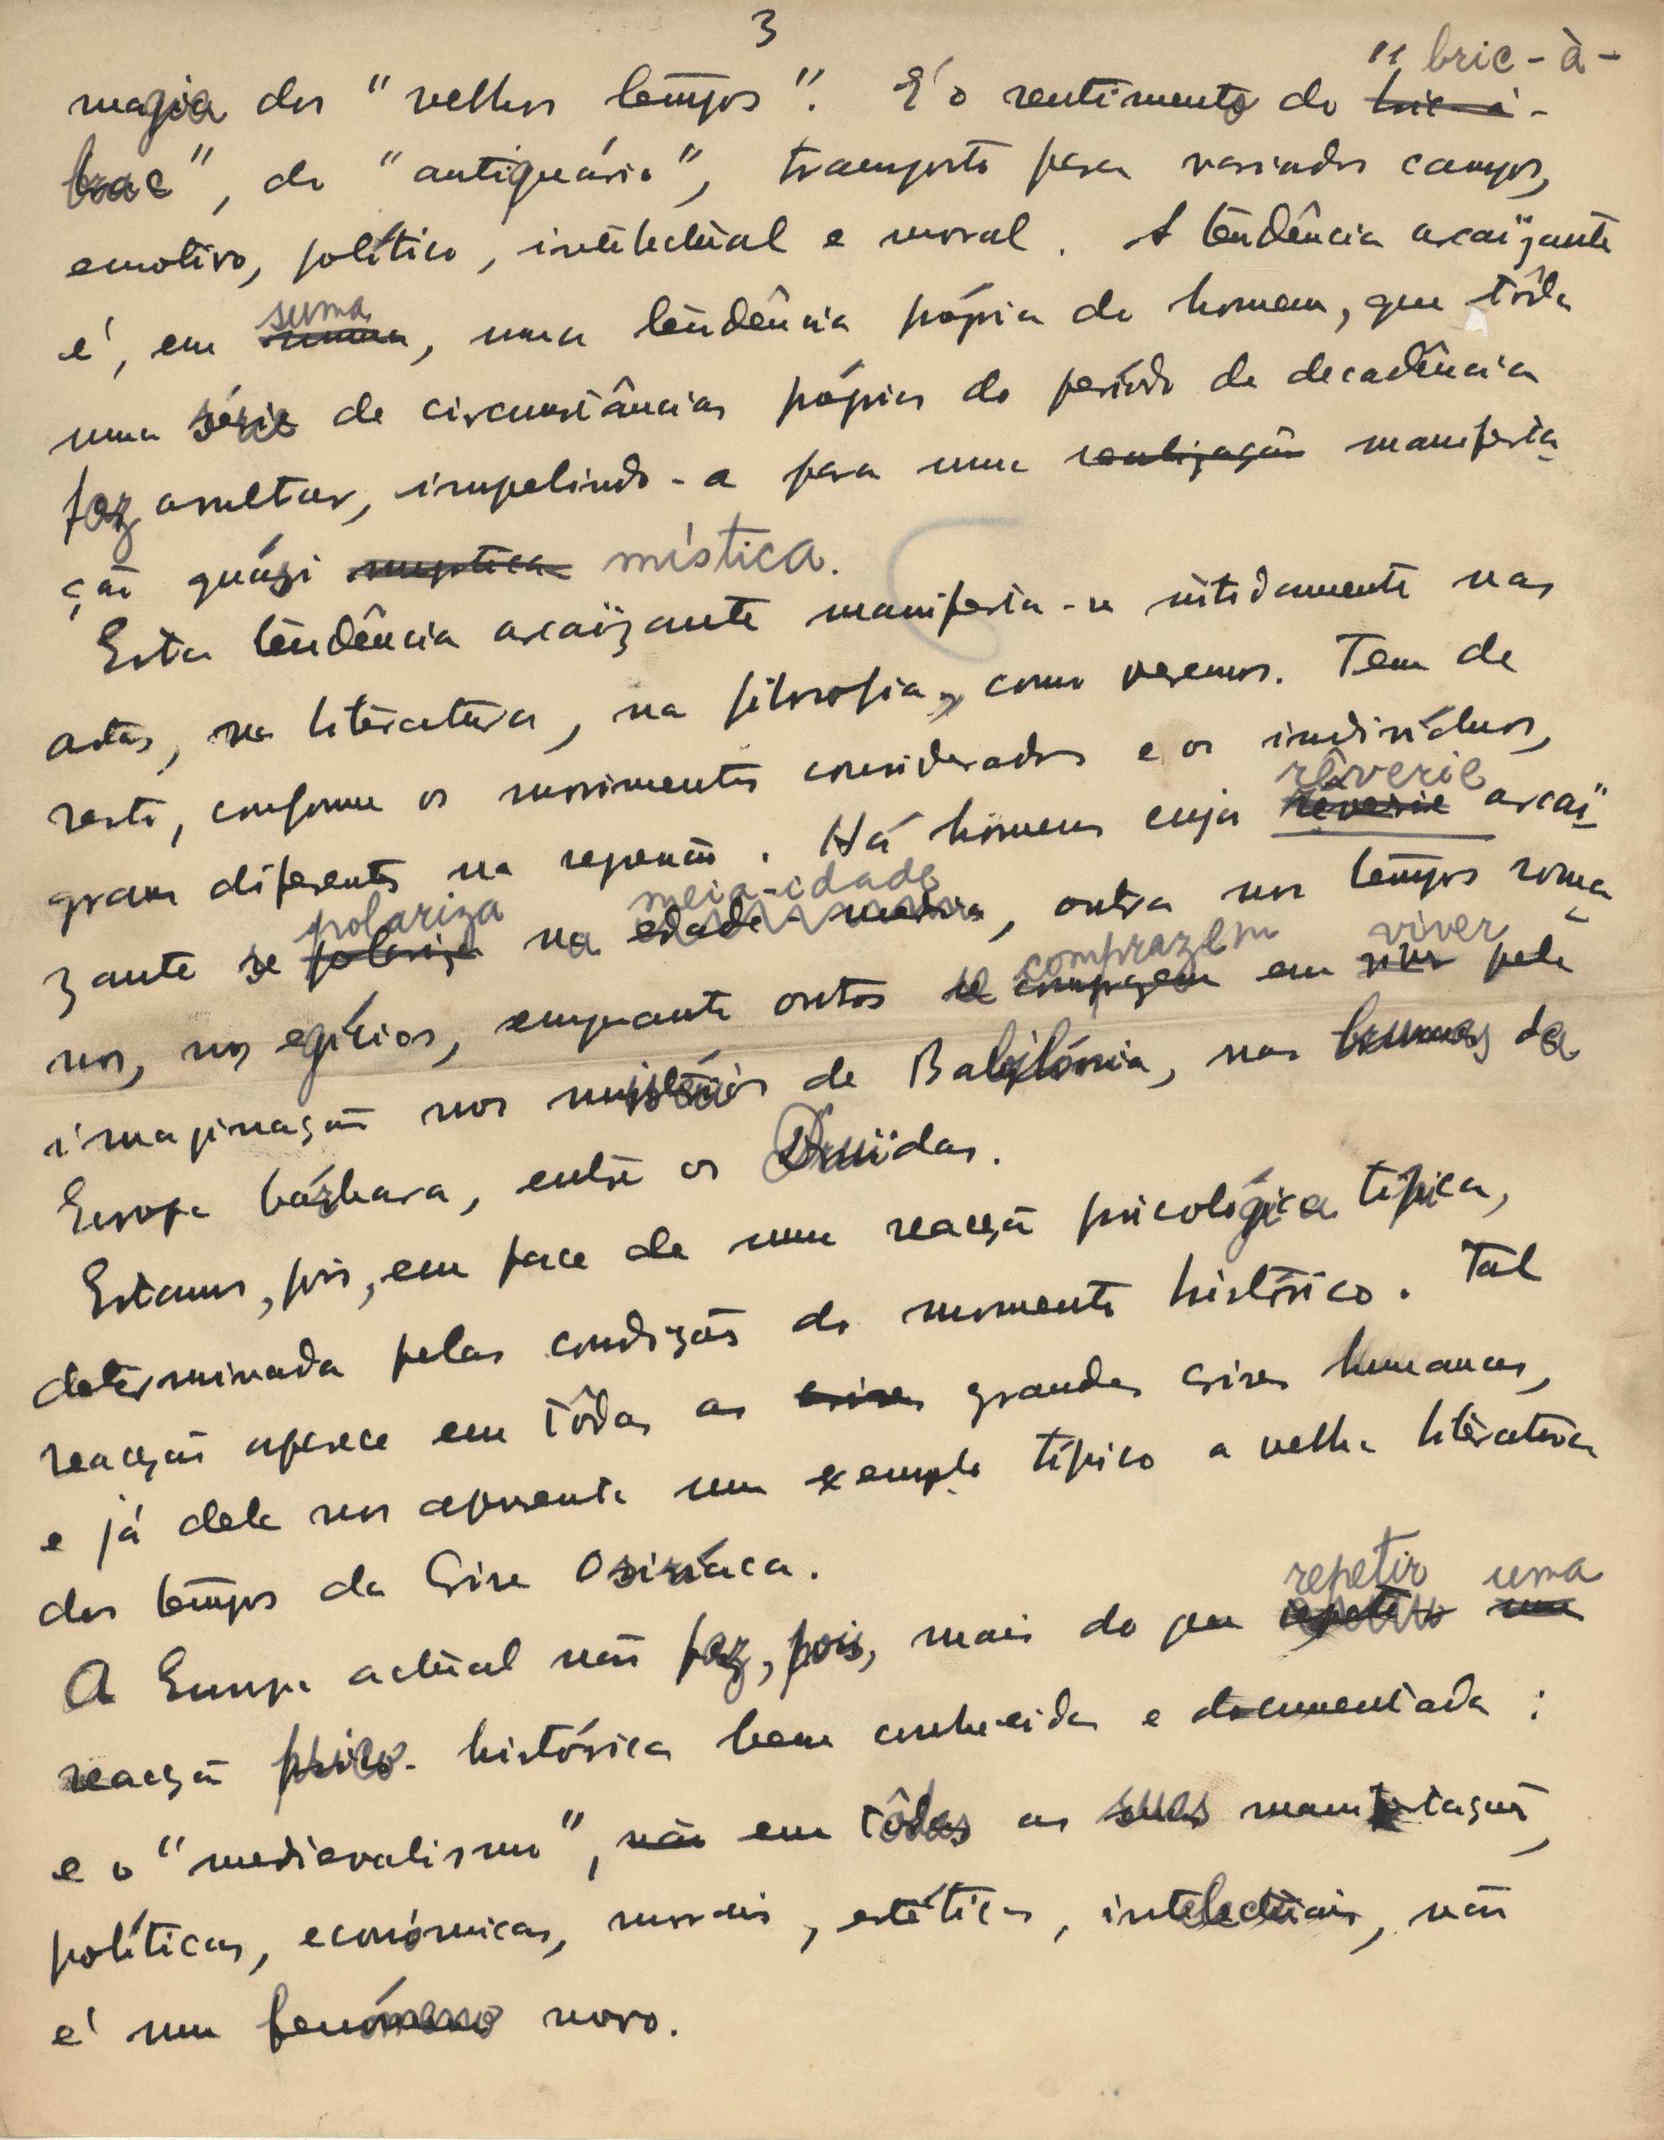 3
magia dos "velhos tempos". É o sentimento do "bric-à-
brac", do "antiquário", transposto para variados campos,
emotivo, político, intelectual e moral. A tendência arcaïzante
é, em suma, uma tendência própria do homem, que tôda
uma série de circunstâncias própias do período de decadência
faz avultar, impelindo-a para uma realização manifesta-
ção quási mystica mística.
Esta tendência arcaïzante manifesta-se nìtidamente nas
artes, na literatura, na filosofia, como veremos. Tem de
resto, conforme os movimentos considerados e os indivíduos,
graus diferentes na regressão. Há homens cuja rêverie arcaï-
zante se polariza na meia-idade, outra nos tempos roma-
nos, nos egípcios, emquanto outros se comprazem em viver pela
imaginação nos mistérios de Babilónia, nas brumas da
Europa bárbara, entre os Druidas.
Estamos, pois, em face de uma reacção psicológica típica,
determinada pelas condições do momento histórico. Tal
reacção aparece em tôdas as crises grandes crises humanas,
e já dela nos apresenta um exemplo típico a velha literatura
dos tempos da Crise Osiríaca.
A Europa actual não faz, pois, mais do que repetir uma
reacção psico-histórica bem conhecida e documentada:
e o "medievalismo", não em tôdas as suas manifestações,
políticas, económicas, morais, estéticas, intelectuais, não
é um fenómeno novo.